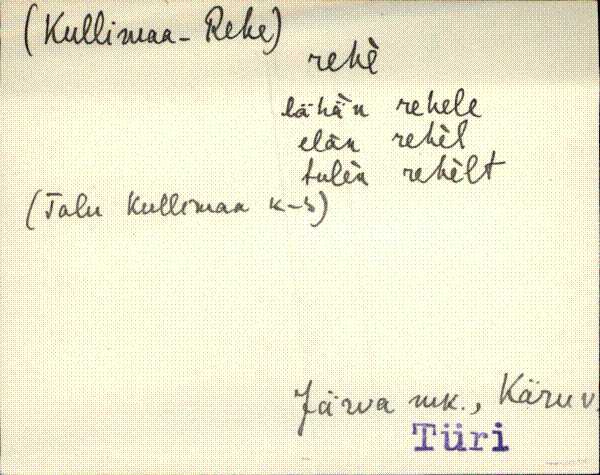 (Kullimaa-Rehe)
rehè
lähä̀n rehele
elàn rehèl
tulèn rehèlt
(Talu Kullimaa k-s)
Järva mk., Käru v.
Türi